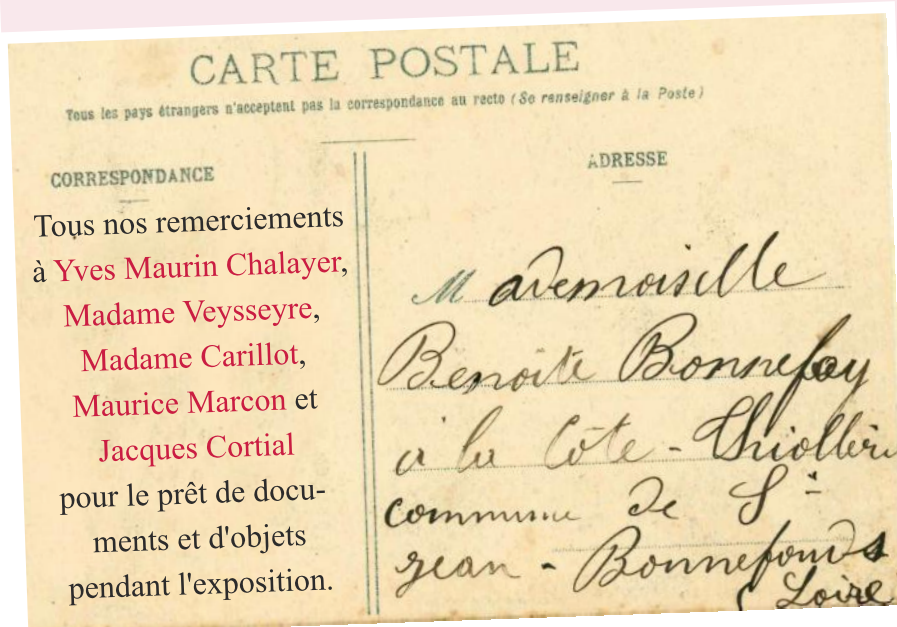 CARTE POSTALE
Tous les pays étrangers n'acceptent pas la correspondance au recto (Se renseigner à la Poste)
CORRESPONDANCE
Tous nos remerciements
à Yves Maurin Chalayer,
Madame Veysseyre,
Madame Carillot,
Maurice Marcon et
Jacques Cortial
pour le prêt de docu-
ments et d'objets
pendant l'exposition.
ADRESSE
Mademoiselle
Benoîte Bonnefoy
à la Côte-
commune de St-
Jean-Bonnefonds
Loire